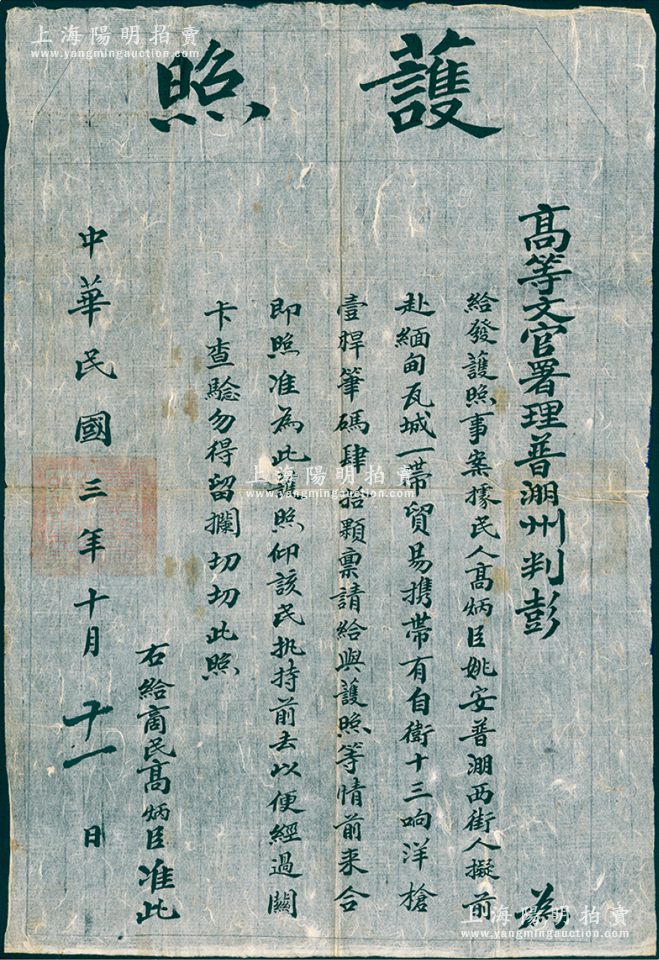 護照
高等文官署理普淜州判彭 為
給發護照事案據民人高炳臣姚安普淜西街人擬前
赴緬甸瓦城一帶貿易携帶有自衛十三响洋槍
壹桿筆碼肆拾顆禀請給與護照等情前来合
即照准為此護照仰該民执持前去以便經過關
卡查驗勿得留攔切切此照
右給商民高炳臣准此
中華民國三年十月十一日
上海陽明拍賣
www.yangmingauction.com
上海陽明拍賣
www.yangmingauction.com
上海陽明拍賣
www.yangmingauction.com